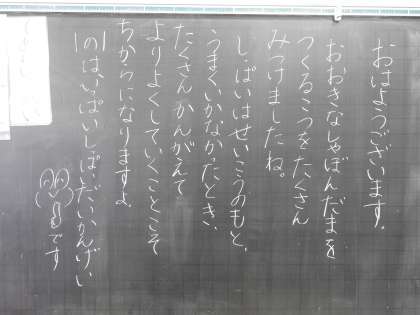 おはようございます。
おおきなしゃぼんだまを
つくるこつを。たくさん
みつけましたね。
しっぱいはせいこうのもと。
うまくいかなかったとき、
たくさんかんがえて
よりよくしていくことこそ
ちからになりますよ。
のは、いっぱいしっぱいだいかんげい
です